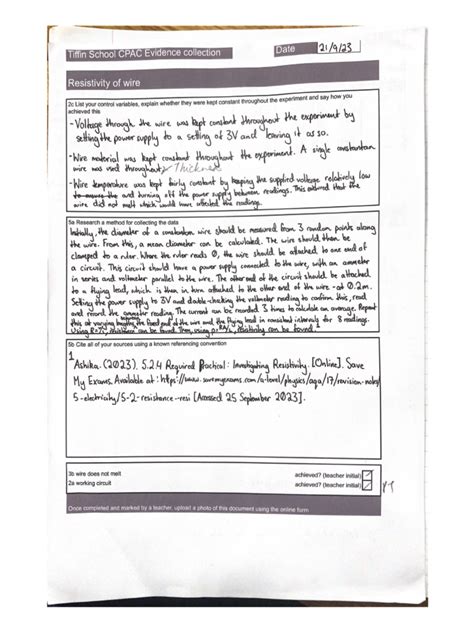 Tiffin School CPAC Evidence collection Date 21/9/23
Resistivity of wire
2c List your control variables, explain whether they were kept constant throughout the experiment and say how you
achieved this
- Voltage through the wire was kept constant throughout the experiment by
setting the power supply to a setting of 3V and leaving it as so.
- Wire material was kept constant throughout the experiment. A single constantan
wire was used throughout. Thickness
- Wire temperature was kept fairly constant by keeping the supplied voltage relatively low
and turning off the power supply between readings. This ensured that the
wire did not melt which would have affected the readings.
5a Research a method for collecting the data
Initially, the diameter of a constantan wire should be measured from 3 random points along
the wire. From this, a mean diameter can be calculated. The wire should then be
clamped to a ruler. Where the ruler reads 0, the wire should be attached to one end of
a circuit. This circuit should have a power supply connected to the wire, with an ammeter
in series and voltmeter parallel to the wire. The other end of the circuit should be attached
to a flying lead, which is then in turn attached to the other end of the wire - at 0.2m.
Setting the power supply to 3V and double-checking the voltmeter reading to confirm this, read
and record the ammeter reading. The current can be recorded 3 times to calculate an average. Repeat
this at varying lengths the fixed end of the wire and the flying lead in consistent intervals for 8 readings.
Using R=V/I, resistance can be found then using ρ=RA/L, resistivity can be found.1
5b Cite all of your sources using a known referencing convention
1
Ashika. (2023). 5.2.4 Required Practical: Investigating Resistivity. [Online]. Save
My Exams. Available at: https://www.savemyexams.com/a-level/physics/aqa/17/revision-notes/
5-electricity/5-2-resistance--resi [Accessed 25 September 2023].
3b wire does not melt achieved? (teacher initial)
2a working circuit achieved? (teacher initial)
Once completed and marked by a teacher, upload a photo of this document using the online form